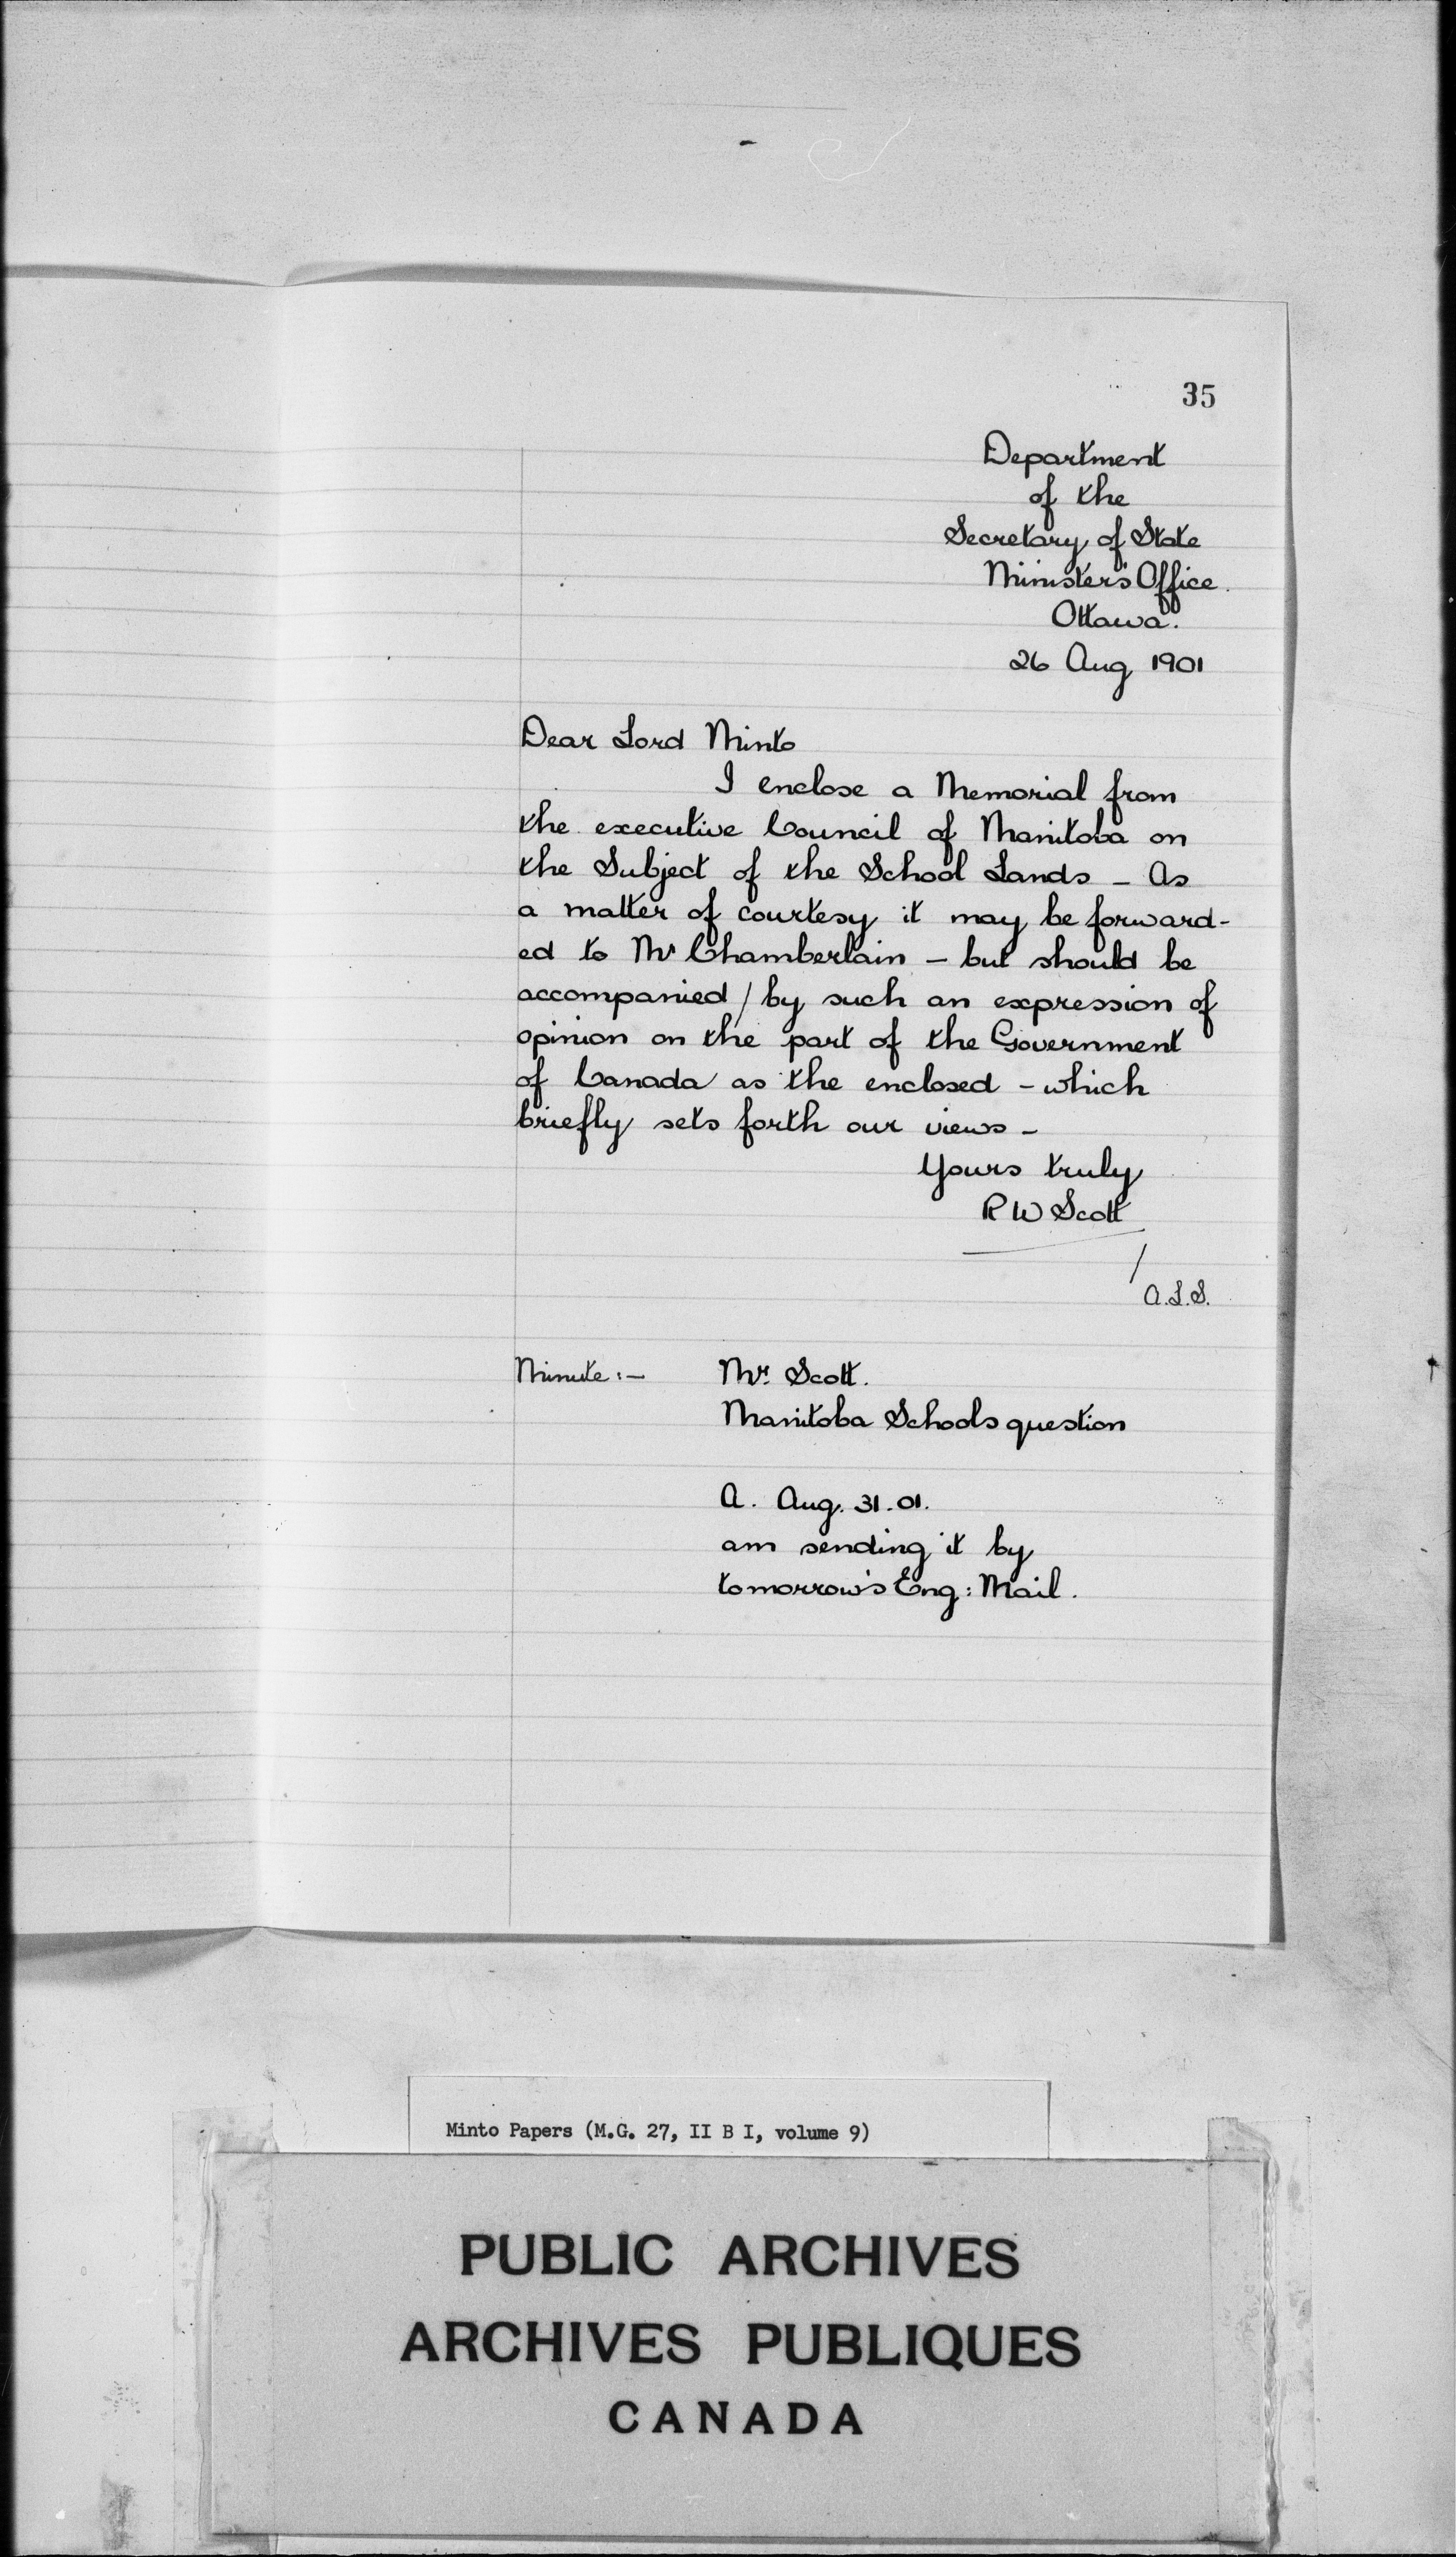 35
Department
of the
Secretary of State
Minister's Office.
Ottawa.
26 Aug 1901
Dear Lord Minto
I enclose a Memorial from
the executive Council of Manitoba on
the Subject of the School Lands – As
a matter of courtesy it may be forward-
ed to Mr Chamberlain – but should be
accompanied / by such an expression of
opinion on the part of the Government
of Canada as the enclosed – which
briefly sets forth our views –
Yours truly
R W Scott
/
A.L.S.
Minute :– Mr. Scott.
Manitoba Schools question
A. Aug. 31.01.
am sending it by
tomorrow's Eng: Mail.
Minto Papers (M.G. 27, II B I, volume 9)
PUBLIC ARCHIVES
ARCHIVES PUBLIQUES
CANADA